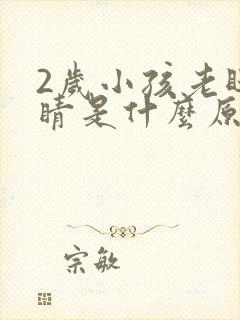 2歲小孩老
睛是什麼原
宗敏